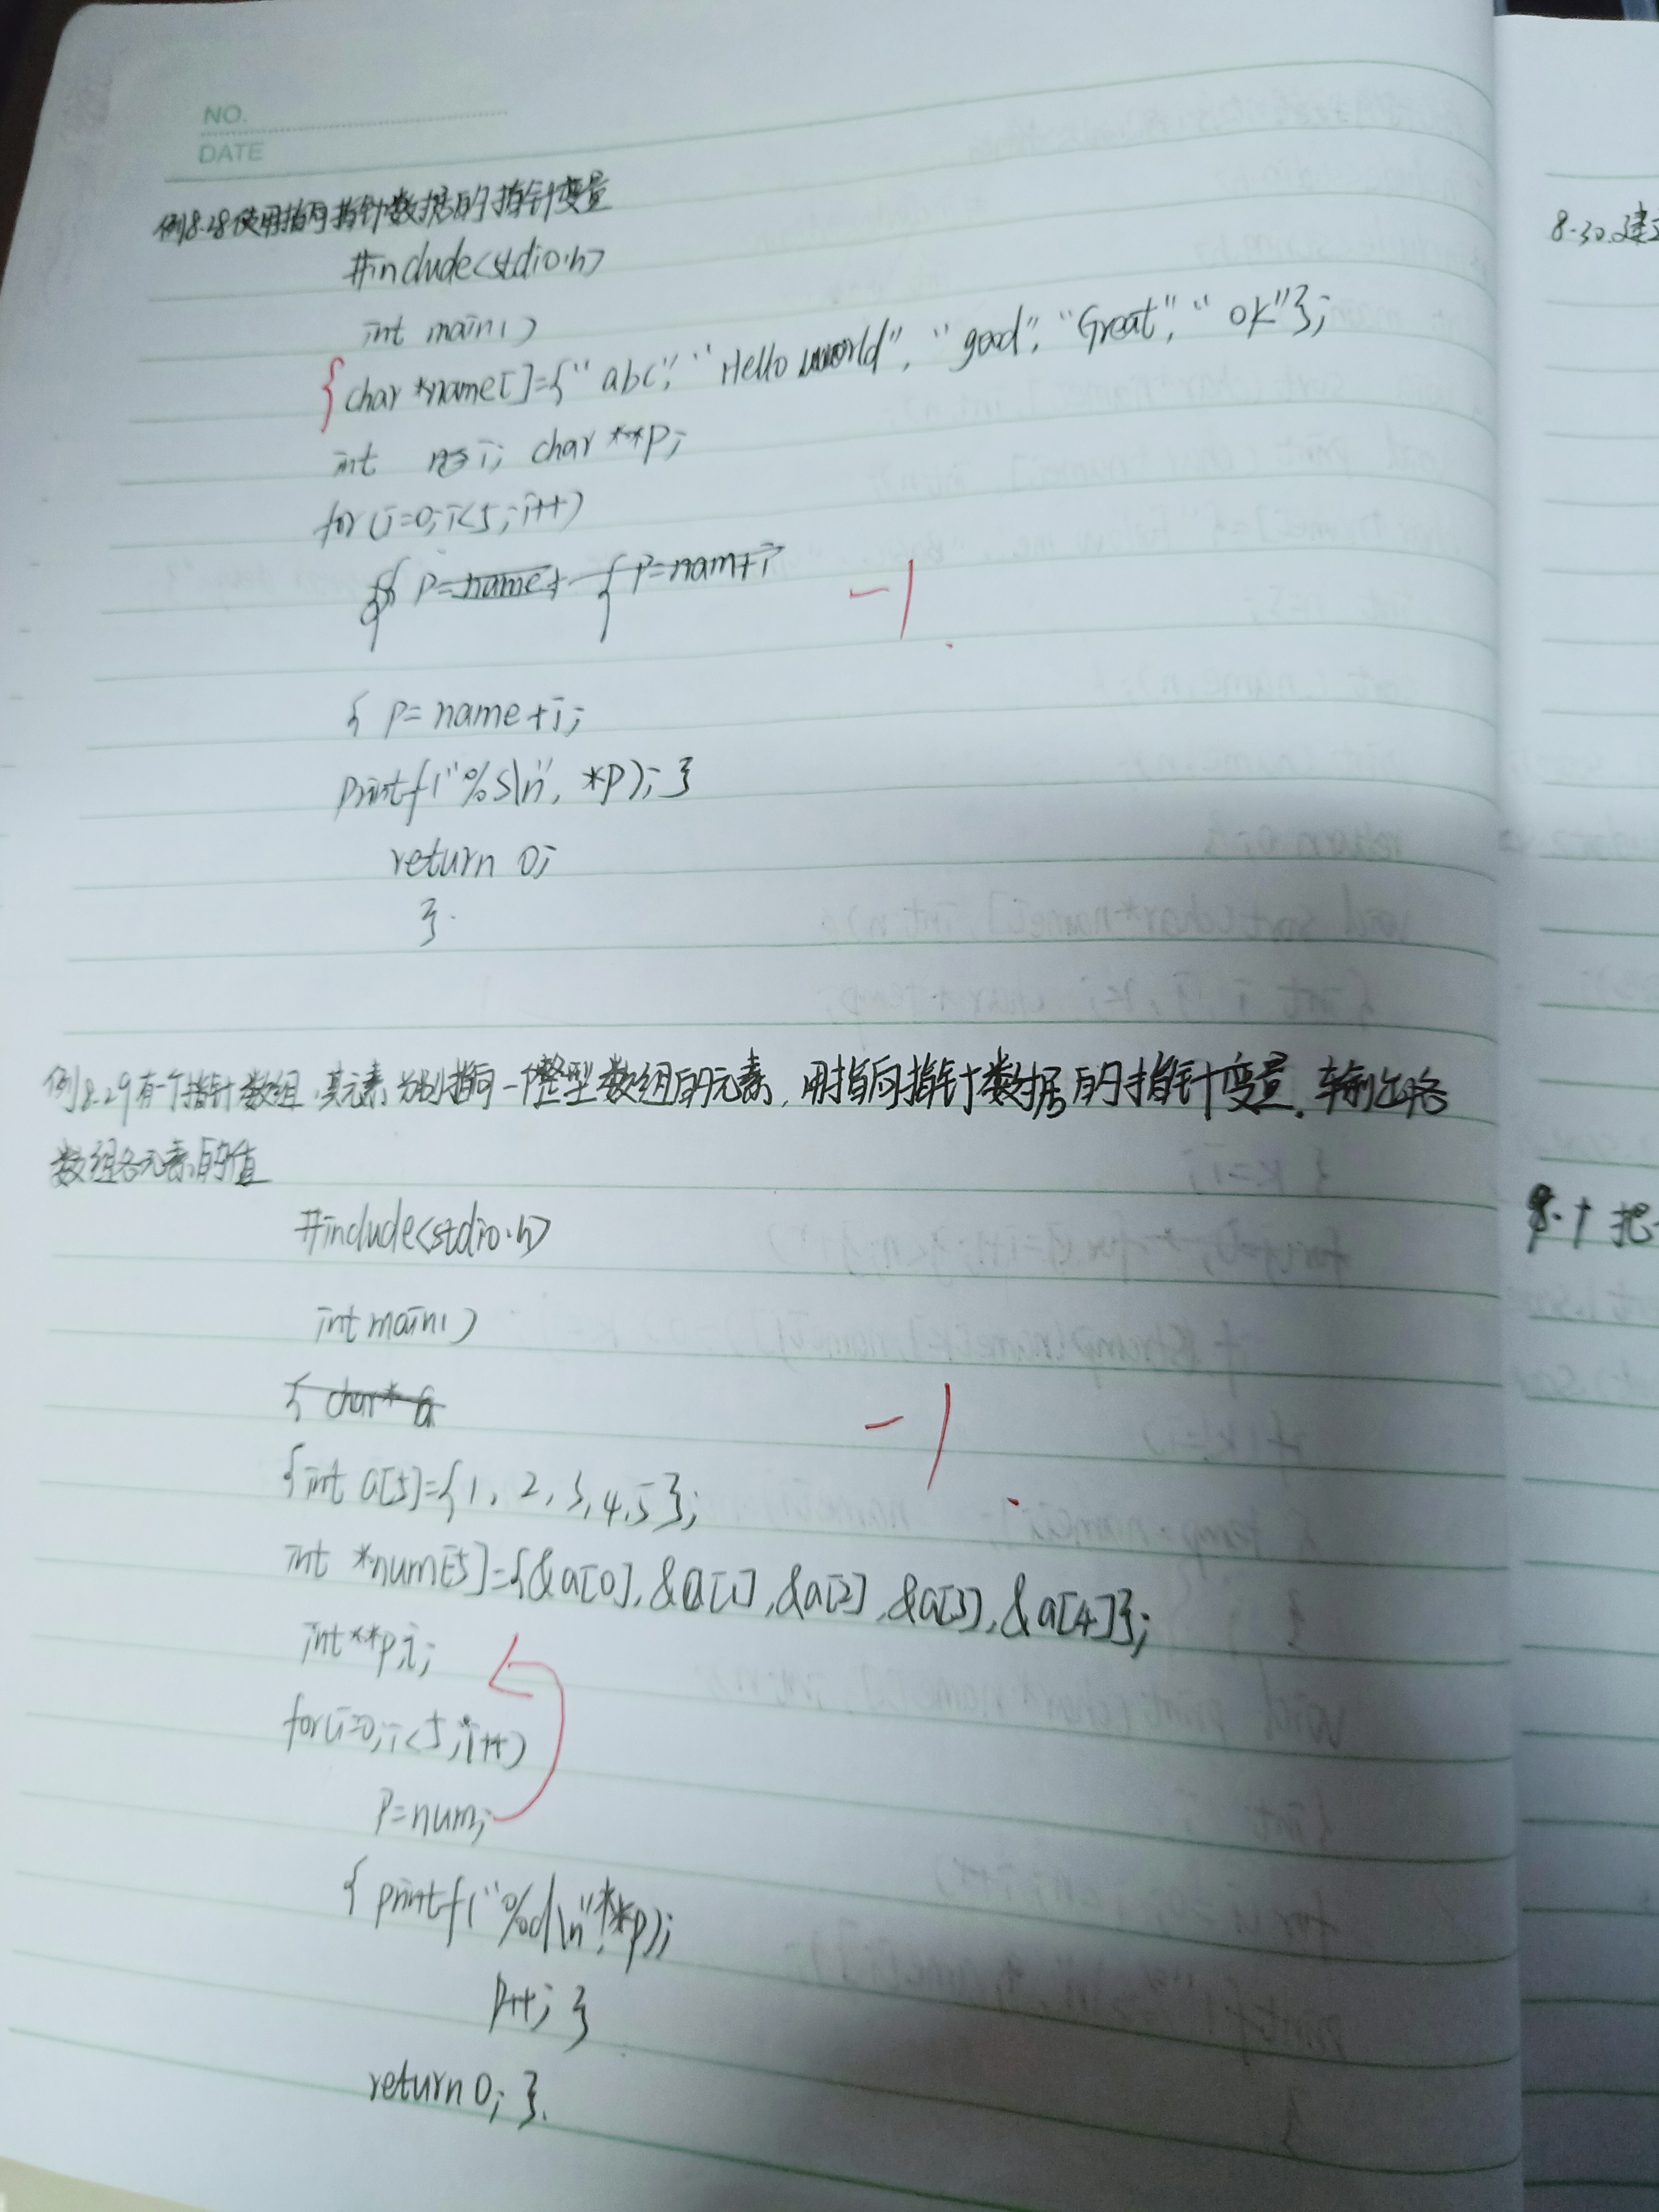 NO.
DATE
例8.28使用指向指针数据的指针变量
#include<stdio.h>
int main()
{ char *name[]={"abc","Hello world","good","Great","ok"};
int i; char **p;
for(i=0;i<5;i++)
{ p=name+ { p=nam+i
-1
{ p=name+i;
printf("%s\n", *p); }
return 0;
}
例8.29有一个指针数组,其元素分别指向一个整型数组的元素,用指向指针数据的指针变量,输出
数组各元素的值
#include<stdio.h>
int main()
{ char* a
-1
{int a[5]={1,2,3,4,5};
int *num[5]={&a[0],&a[1],&a[2],&a[3],&a[4]};
int**p,i;
for(i=0;i<5;i++)
p=num;
{ printf("%d\n",**p);
p++; }
return 0; }
8.30.建
8.1 把